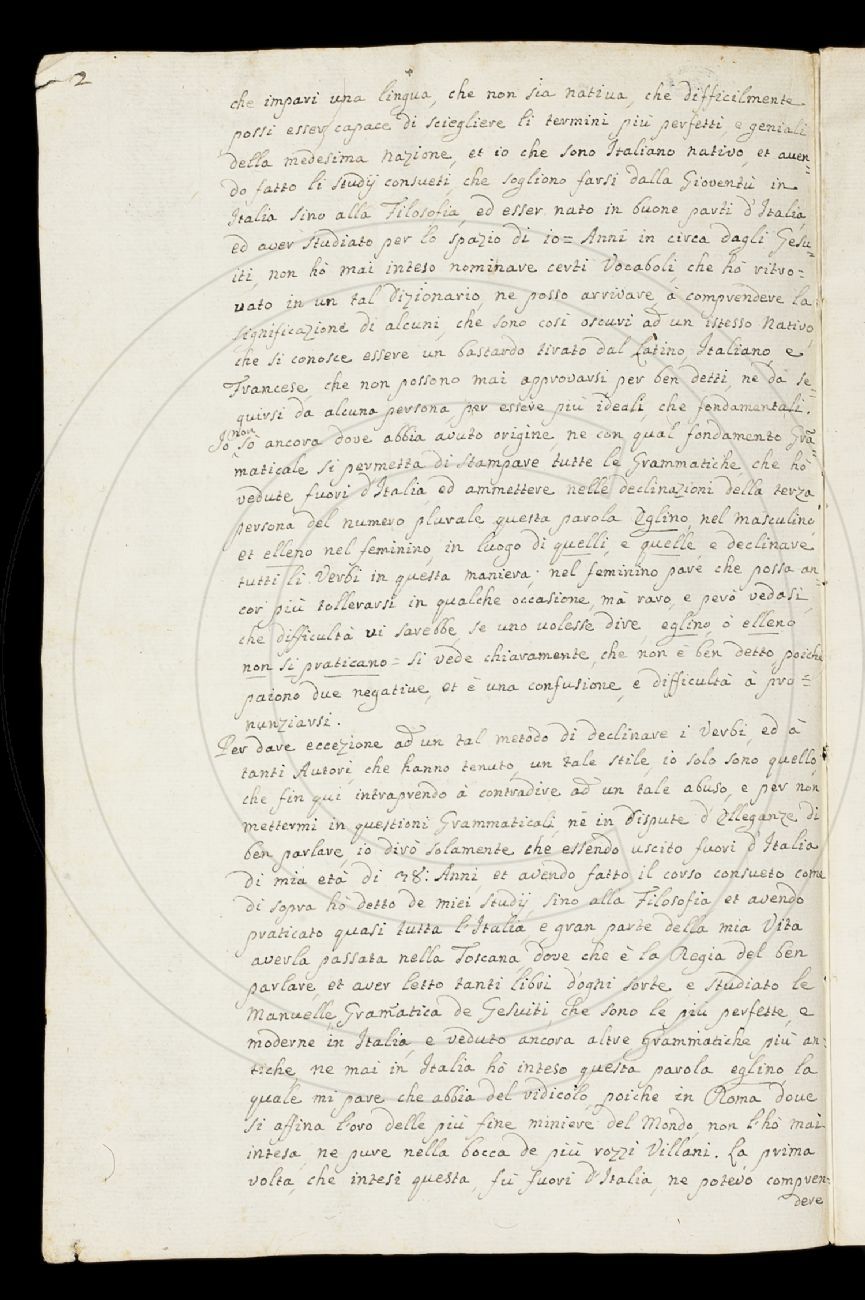 2
che impari una lingua, che non sia nativa, che difficilmente
possi esser capace di sciegliere li termini più perfetti, e geniali
della medesima Nazione, et io che sono Italiano nativo, et aven=
do fatto li studij consueti, che sogliono farsi dalla Gioventù in
Italia sino alla Filosofia, ed esser nato in buone parti d'Italia,
ed aver studiato per lo spazio di 10= Anni in circa dagli Gesu=
iti, non hò mai inteso nominare certi Vocaboli, che hò ritro=
vato in un tal Dizionario, ne posso arrivare à comprendere la
significazione di alcuni, che sono così oscuri ad un istesso Nativo,
che si conosce essere un bastardo tirato dal Latino, Italiano, e
Francese, che non possono mai approvarsi per ben detti, ne dà se=
quirsi da alcuna persona, per essere più ideali, che fondamentali.
Io non sò ancora dove abbia avuto origine, ne con qual fondamento Grã=
maticale si permetta di stampare tutte le Grammatiche, che hò
vedute fuori d'Italia, ed ammettere nelle declinazioni della terza
persona del numero plurale questa parola Eglino, nel masculino,
et elleno nel feminino, in luogo di quelli, e quelle, e declinare
tutti li Verbi in questa maniera; nel feminino pare che possa an=
cor più tollerarsi in qualche occasione, mà raro, e però vedasi,
che difficultà vi sarebbe, se uno volesse dire, eglino, ò elleno
non si praticano= si vede chiaramente, che non è ben detto, poiche
paiono due negative, et è una confusione, e difficultà à pro=
nunziarsi.
Per dare eccezione ad un tal metodo di declinare i Verbi, ed à
tanti Autori, che hanno tenuto un tale stile, io solo sono quello,
che fin qui intraprendo à contradire ad un tale abuso, e per non
mettermi in questioni Grammaticali, nè in dispute d'Elleganze di
ben parlare, io dirò solamente che essendo uscito fuori d'Italia
di mia età di 38: Anni, et avendo fatto il corso consueto come
di sopra hò detto de miei studij, sino alla Filosofia, et avendo
praticato quasi tutta l'Italia, e gran parte della mia Vita
averla passata nella Toscana, dove che è la Regia del ben
parlare, et aver letto tanti libri d'ogni sorte, e studiato le
Manuelle, Gram̃atica de Gesuiti, che sono le più perfette, e
moderne in Italia, e veduto ancora altre Grammatiche più an:
tiche, ne mai in Italia hò inteso questa parola eglino, la
quale mi pare che abbia del ridicolo, poiche in Roma dove
si affina l'oro delle più fine miniere del Mondo, non l'hò mai
intesa, ne pure nella bocca de più rozzi Villani. La prima
volta, che intesi questa, fù fuori d'Italia, ne potevo compren:
dere